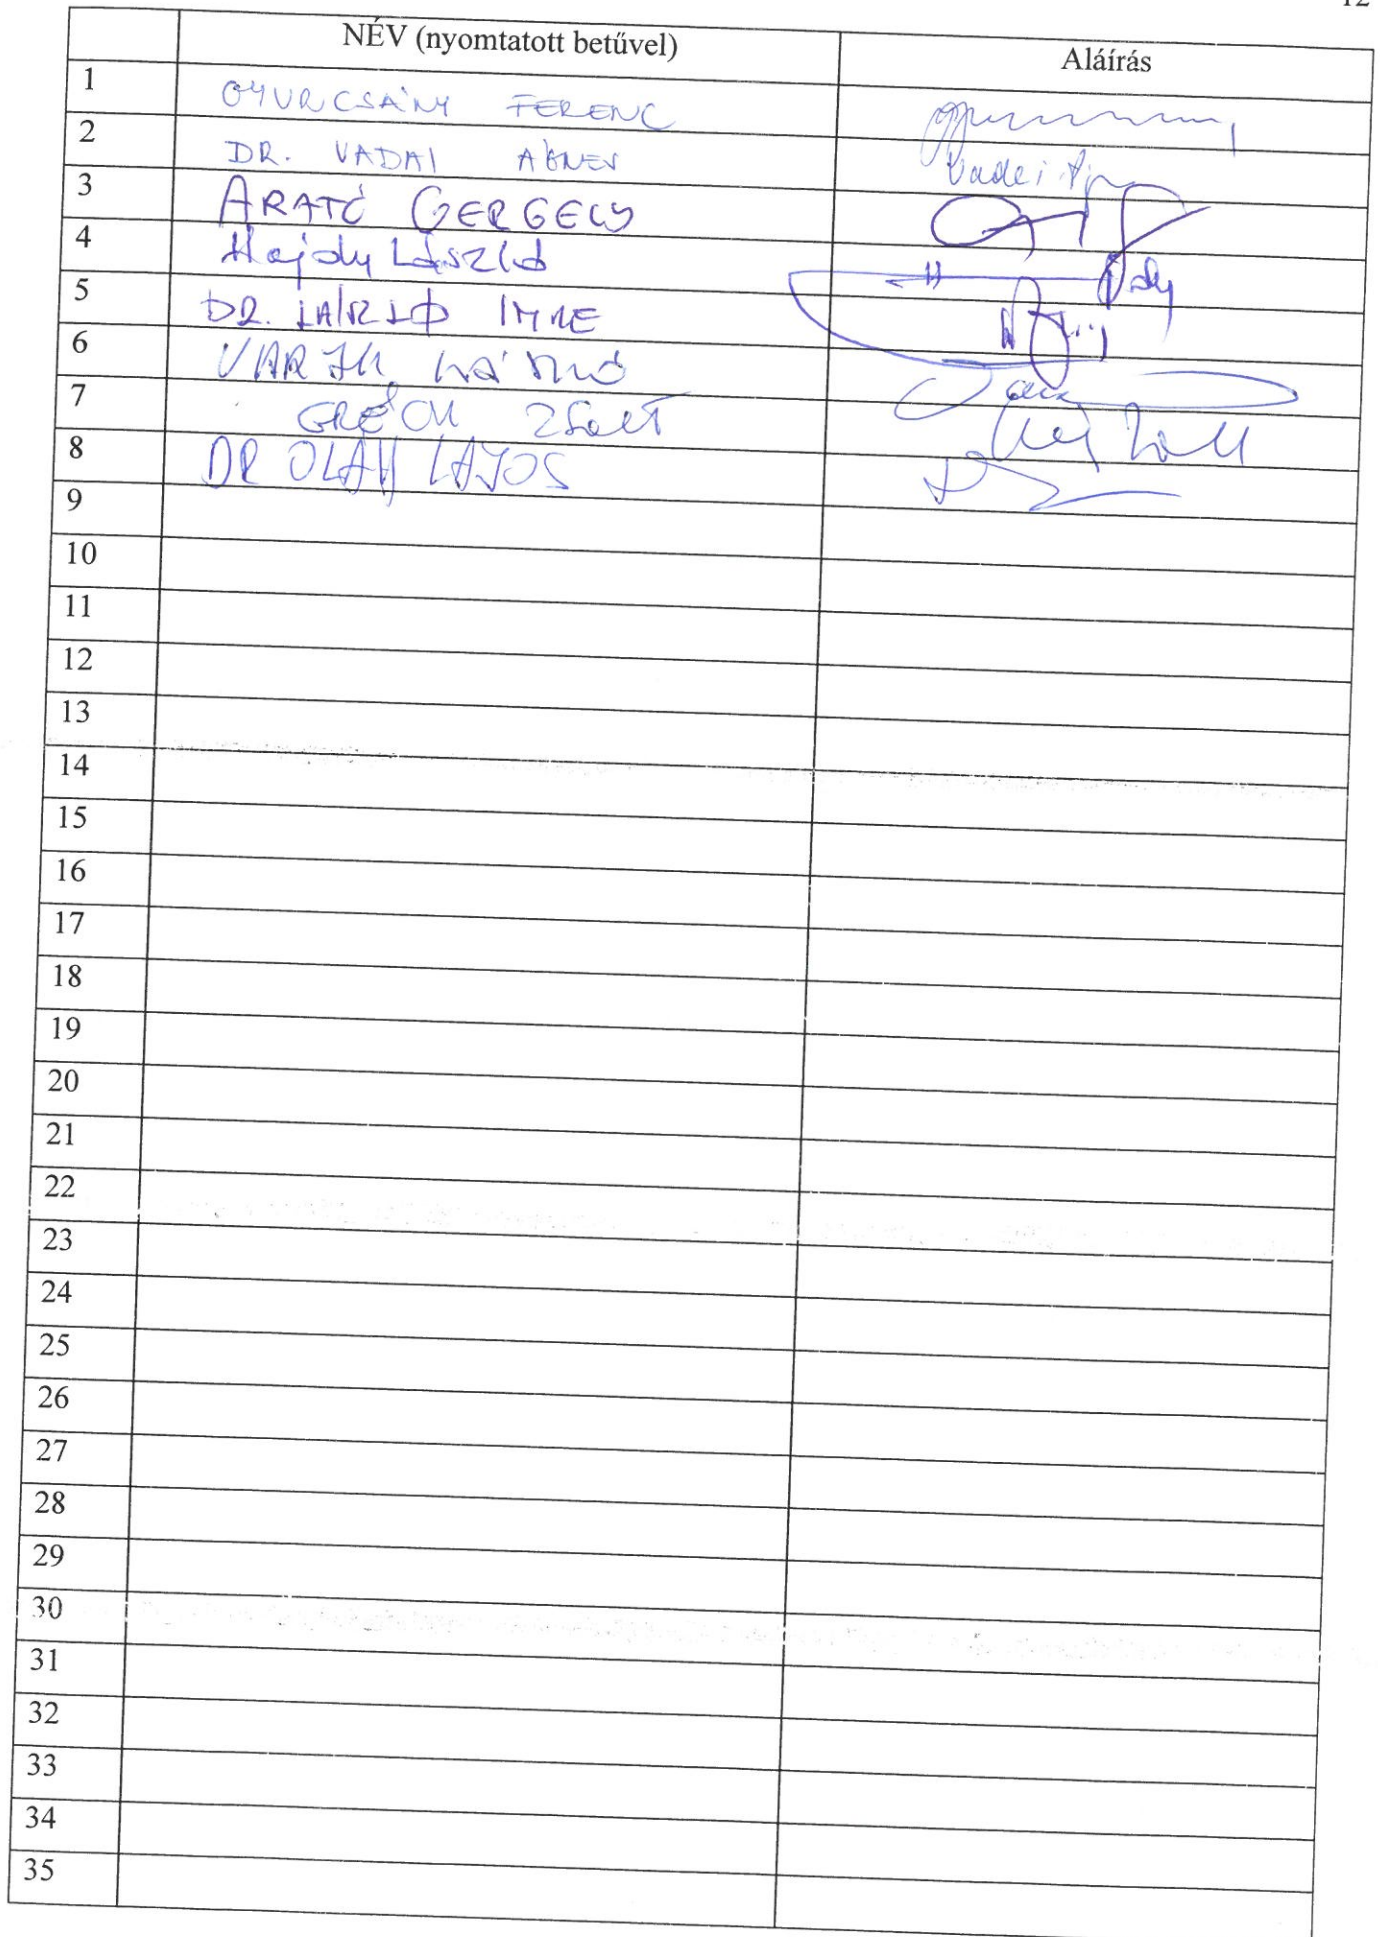 12
NÉV (nyomtatott betűvel) Aláírás
1 GYURCSÁNY FERENC
2 DR. VADAI ÁGNES Vadai Ágnes
3 ARATÓ GERGELY
4 Hajdu László
5 DR. LÁSZLÓ IMRE
6 VARJU LÁSZLÓ
7 GRÉCZY ZSOLT
8 DR OLÁH LAJOS
9
10
11
12
13
14
15
16
17
18
19
20
21
22
23
24
25
26
27
28
29
30
31
32
33
34
35